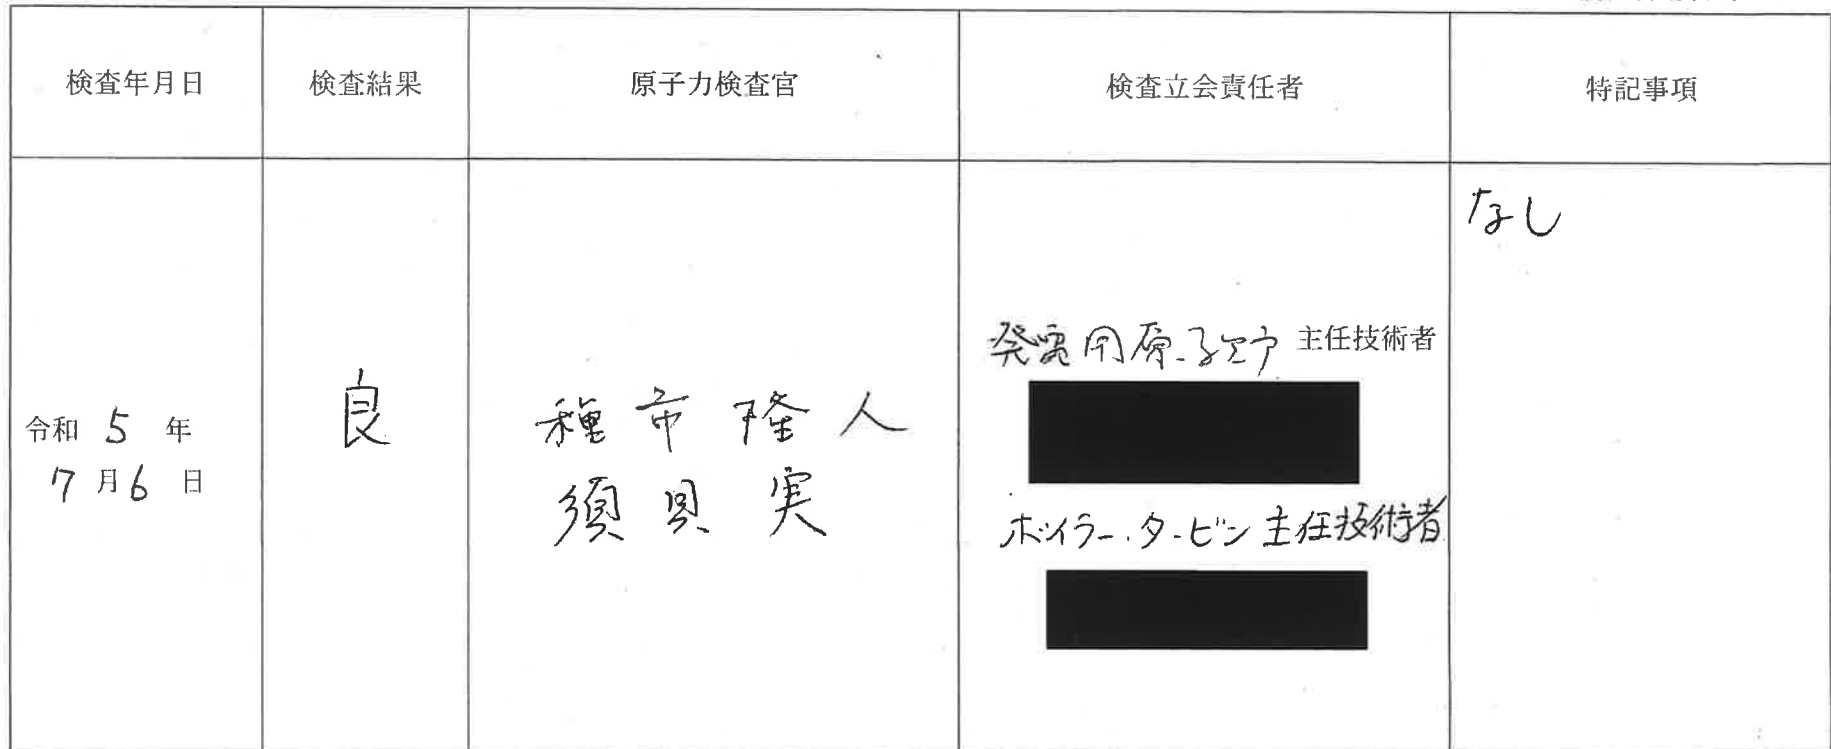 検査年月日
検査結果
原子力検査官
検査立会責任者
特記事項
令和 5 年
7 月 6 日
良
種市 隆人
須貝 実
発電用原子炉 主任技術者
ボイラー・タービン主任技術者
なし